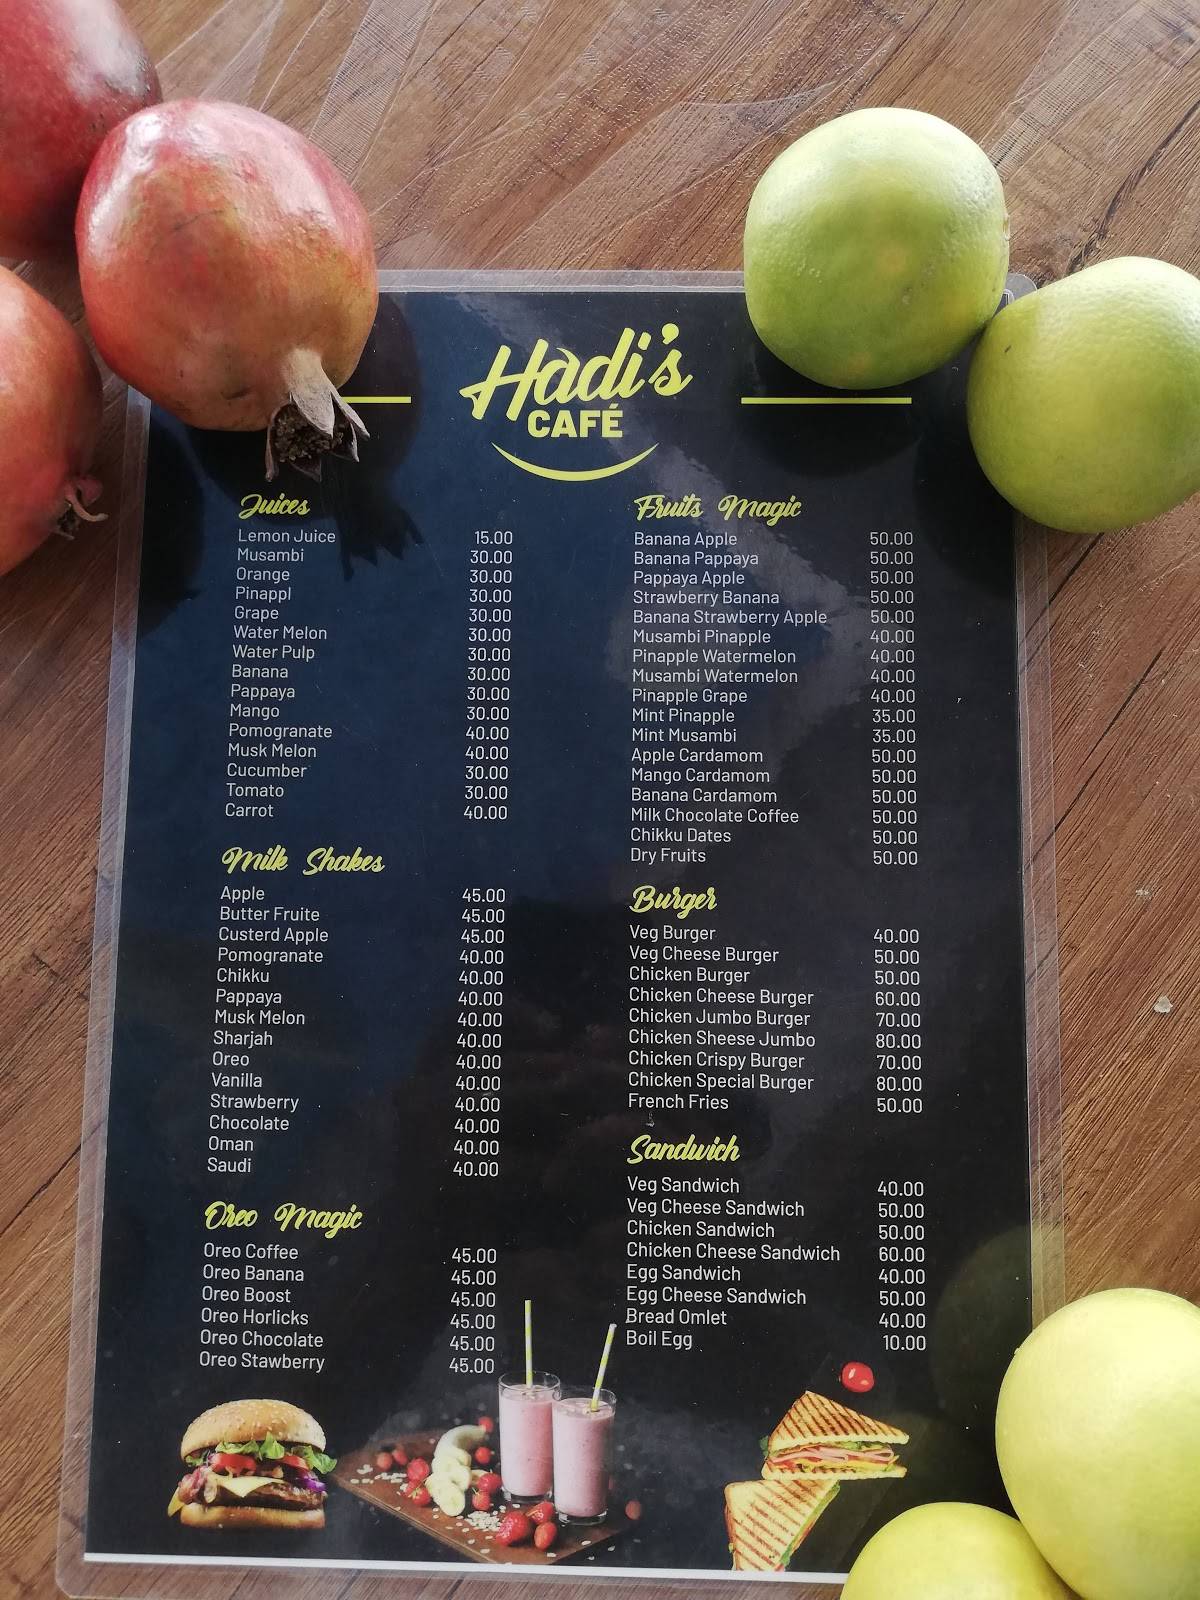 Hadi's
CAFÉ
Juices
Lemon Juice 15.00
Musambi 30.00
Orange 30.00
Pinappl 30.00
Grape 30.00
Water Melon 30.00
Water Pulp 30.00
Banana 30.00
Pappaya 30.00
Mango 30.00
Pomogranate 40.00
Musk Melon 40.00
Cucumber 30.00
Tomato 30.00
Carrot 40.00
Milk Shakes
Apple 45.00
Butter Fruite 45.00
Custerd Apple 45.00
Pomogranate 40.00
Chikku 40.00
Pappaya 40.00
Musk Melon 40.00
Sharjah 40.00
Oreo 40.00
Vanilla 40.00
Strawberry 40.00
Chocolate 40.00
Oman 40.00
Saudi 40.00
Oreo Magic
Oreo Coffee 45.00
Oreo Banana 45.00
Oreo Boost 45.00
Oreo Horlicks 45.00
Oreo Chocolate 45.00
Oreo Stawberry 45.00
Fruits Magic
Banana Apple 50.00
Banana Pappaya 50.00
Pappaya Apple 50.00
Strawberry Banana 50.00
Banana Strawberry Apple 50.00
Musambi Pinapple 40.00
Pinapple Watermelon 40.00
Musambi Watermelon 40.00
Pinapple Grape 40.00
Mint Pinapple 35.00
Mint Musambi 35.00
Apple Cardamom 50.00
Mango Cardamom 50.00
Banana Cardamom 50.00
Milk Chocolate Coffee 50.00
Chikku Dates 50.00
Dry Fruits 50.00
Burger
Veg Burger 40.00
Veg Cheese Burger 50.00
Chicken Burger 50.00
Chicken Cheese Burger 60.00
Chicken Jumbo Burger 70.00
Chicken Sheese Jumbo 80.00
Chicken Crispy Burger 70.00
Chicken Special Burger 80.00
French Fries 50.00
Sandwich
Veg Sandwich 40.00
Veg Cheese Sandwich 50.00
Chicken Sandwich 50.00
Chicken Cheese Sandwich 60.00
Egg Sandwich 40.00
Egg Cheese Sandwich 50.00
Bread Omlet 40.00
Boil Egg 10.00